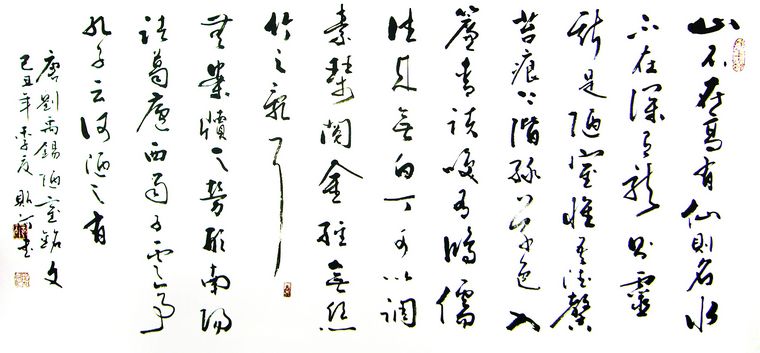 山不在高有仙則名水
不在深有龍則靈
斯是陋室惟吾德馨
苔痕上階綠草色入
簾青談笑有鴻儒
往来無白丁可以調
素琴閱金經無絲
竹之亂耳
無案牘之勞形南陽
諸葛廬西蜀子雲亭
孔子云何陋之有
唐劉禹錫陋室銘文
己丑年季夏